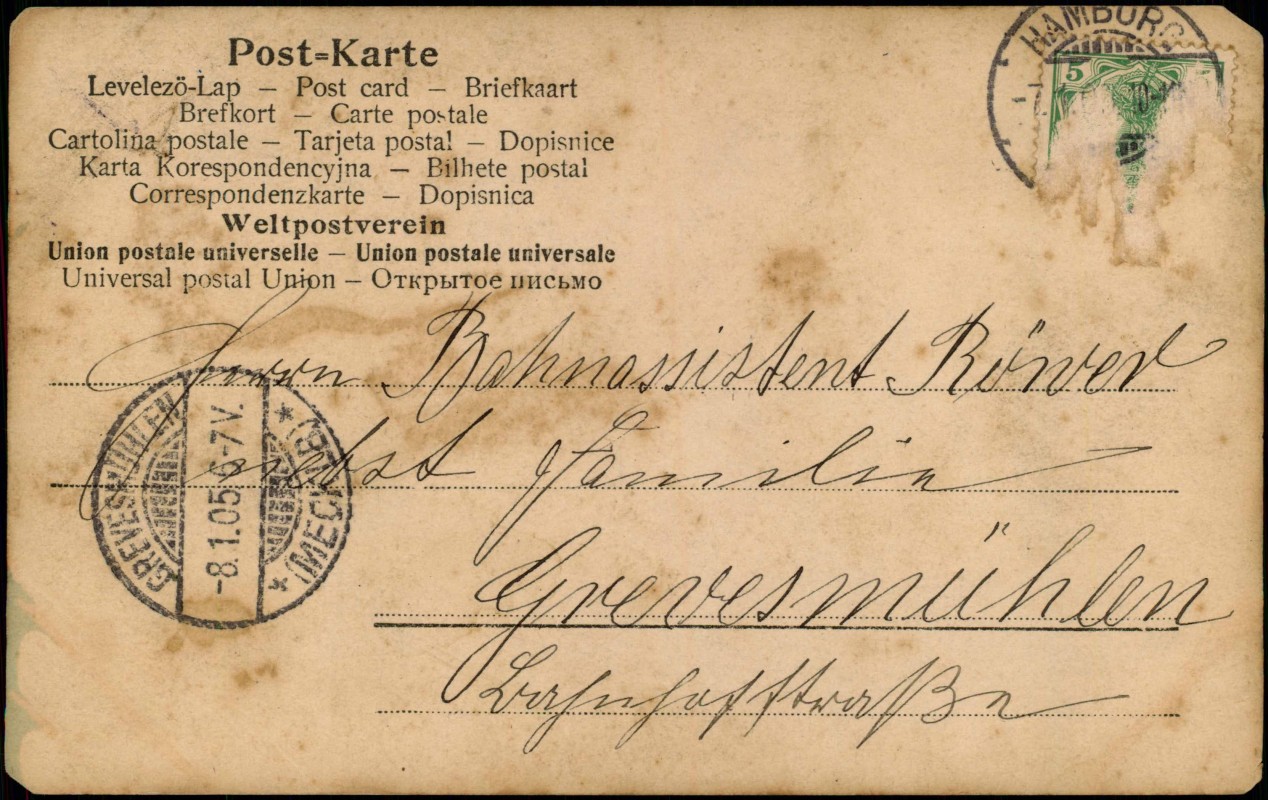 Post-Karte
Levelezö-Lap — Post card — Briefkaart
Brefkort — Carte postale
Cartolina postale — Tarjeta postal — Dopisnice
Karta Korespondencyjna — Bilhete postal
Correspondenzkarte — Dopisnica
Weltpostverein
Union postale universelle — Union postale universale
Universal postal Union — Открытое письмо
HAMBURG
5
Herrn Bahnassistent Röwer
nebst Familie
Grevesmühlen
Bahnhofstraße
GREVESMÜHLEN
-8.1.05.6-7V.
* (MECKLB) *